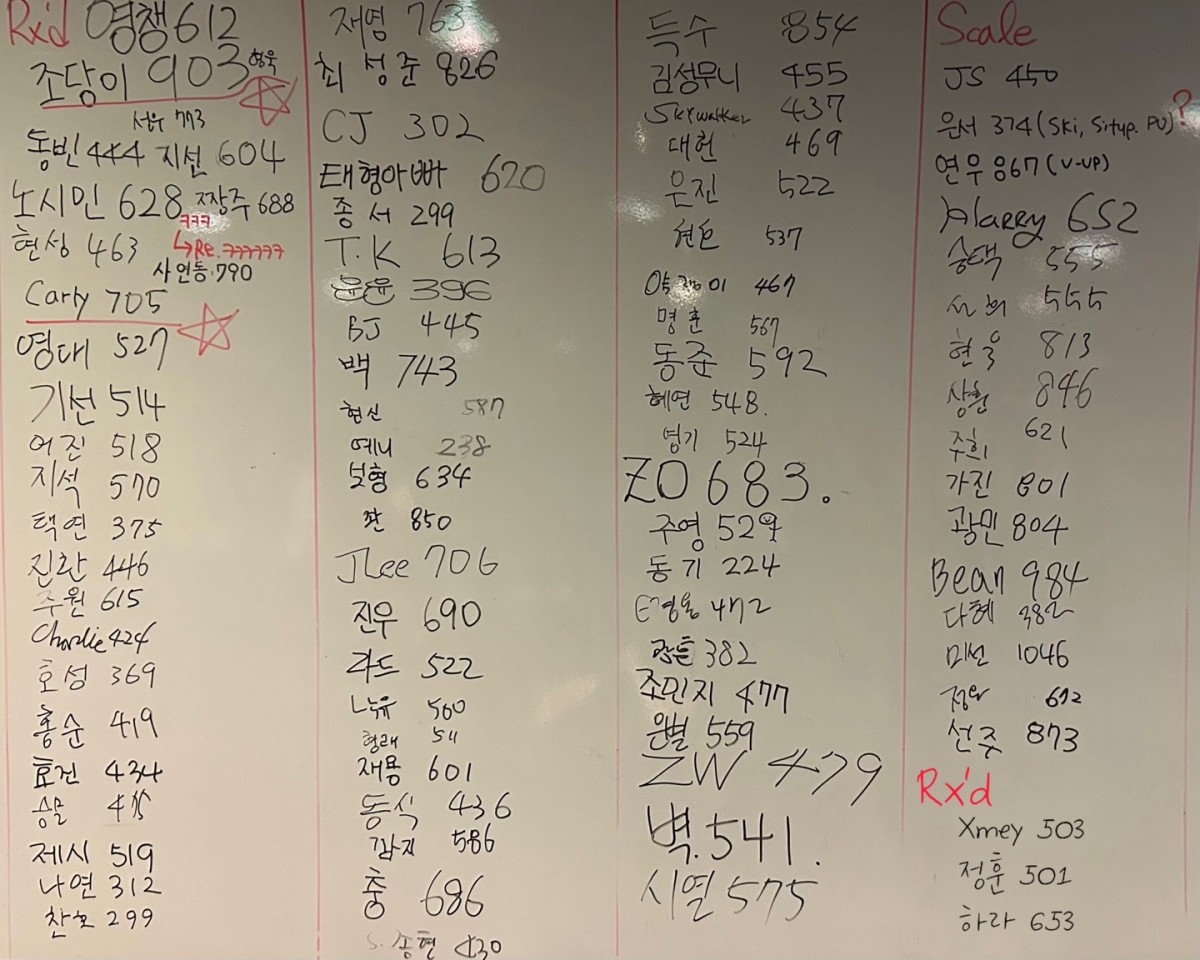 Rx'd 영챙 612
조당이 903 형욱
서우 773
동빈 444 지선 604
노시민 628 짜장주 688
ㅋㅋㅋ
현성 463 ↳Re. ㅋㅋㅋㅋㅋㅋ
사연동 790
Carly 705
영대 527
기선 514
어진 518
지석 570
택연 375
진완 446
주원 615
Charlie 424
호성 369
홍순 419
효건 434
475
제시 519
나연 312
찬호 299
재영 763
최성준 826
CJ 302
태형아빠 620
종서 299
T.K 613
윤윤 396
BJ 445
백 743
형신 587
예니 238
보형 634
좌 850
JLee 706
진우 690
라드 522
ㄴ뉴유 560
형래 511
재용 601
동식 436
깜지 586
충 686
S. 종현 430
득수 854
김성무니 455
Skywalker 437
대헌 469
은진 522
537
467
명훈 567
동준 592
혜연 548.
영기 524
ZO 683.
주영 529
동기 224
472
382
조민지 477
은별 559
ZW 479
벽.541.
시열 575
Scale
JS 450
은서 374 (Ski, Situp. PU) ?
연우 867 (V-UP)
Harry 652
승택 555
555
현욱 813
상훈 846
주희 621
가진 801
광민 804
Bean 984
다혜 382
미선 1046
692
선주 873
Rx'd
Xmey 503
정훈 501
하라 653